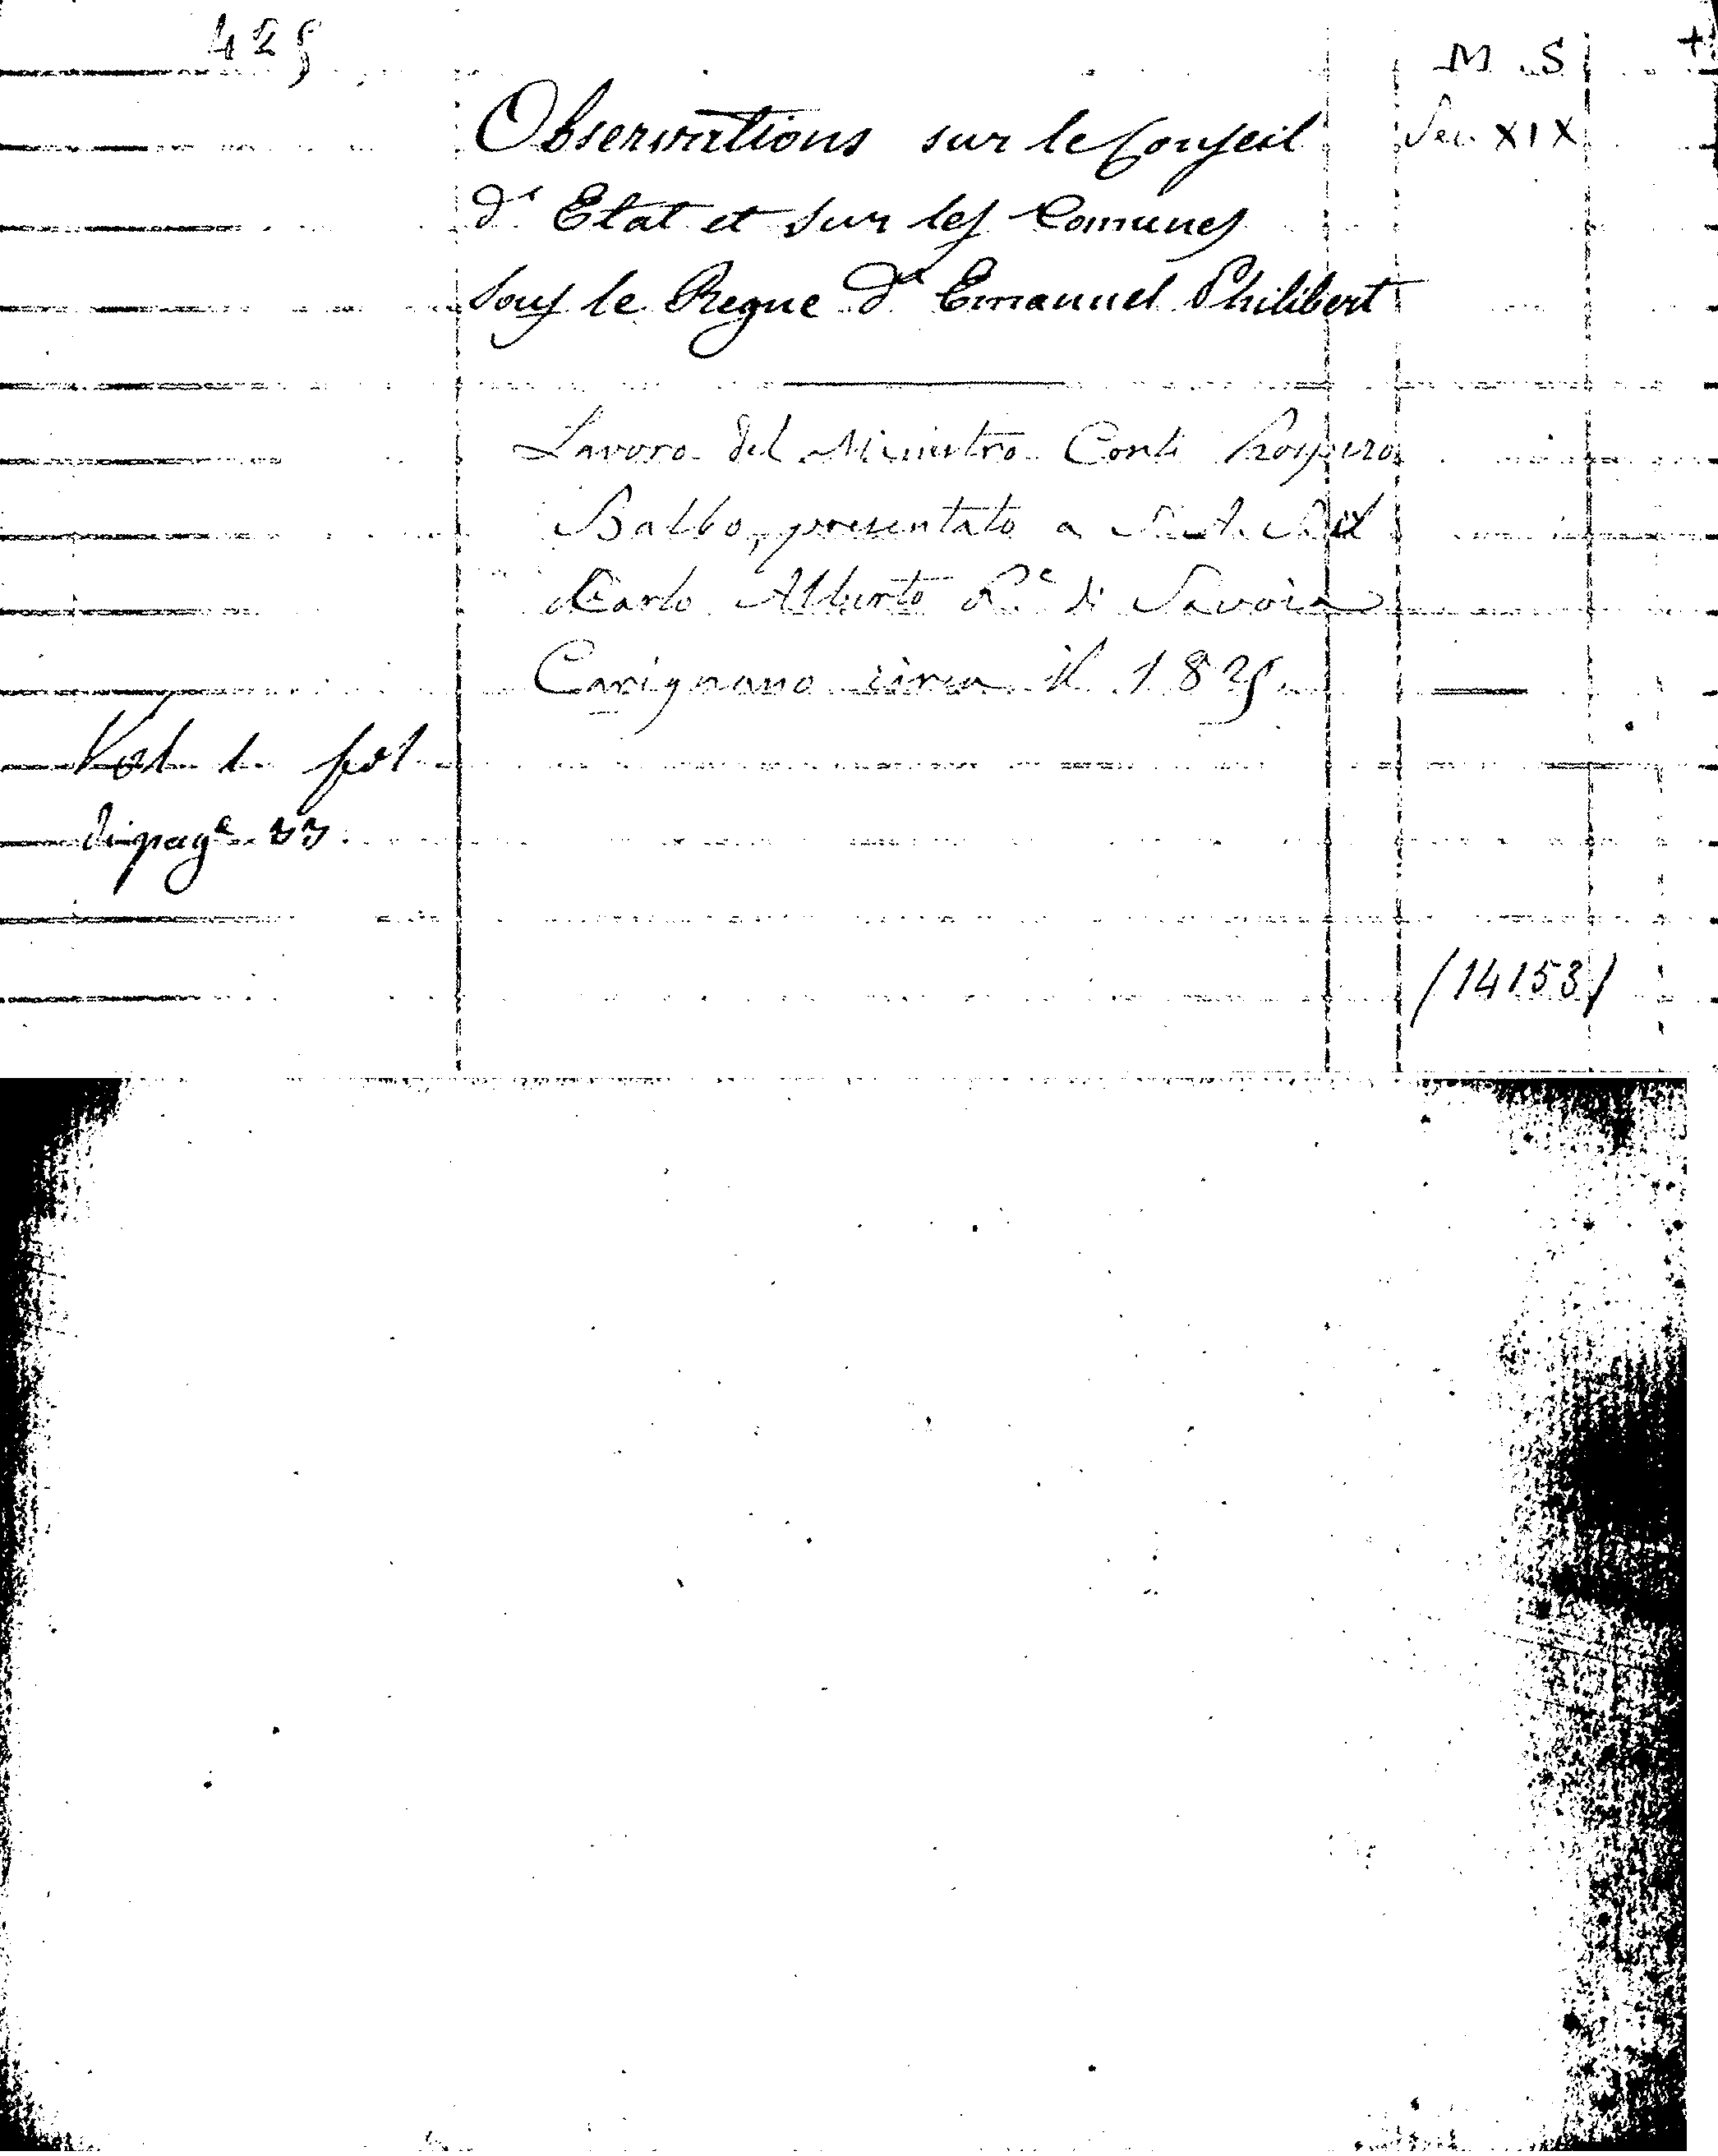 425
M. S. +
Observations sur le Conseil
Sec. XIX
d' Etat et sur les Comunes
sous le Regne d' Emanuel Philibert
Lavoro del Ministro Conte Prospero
Balbo, presentato a S. A. il
Carlo Alberto P.e di Savoia
Carignano circa il 1825.
Vol. 1. fol
di pag.e 33
(14153)